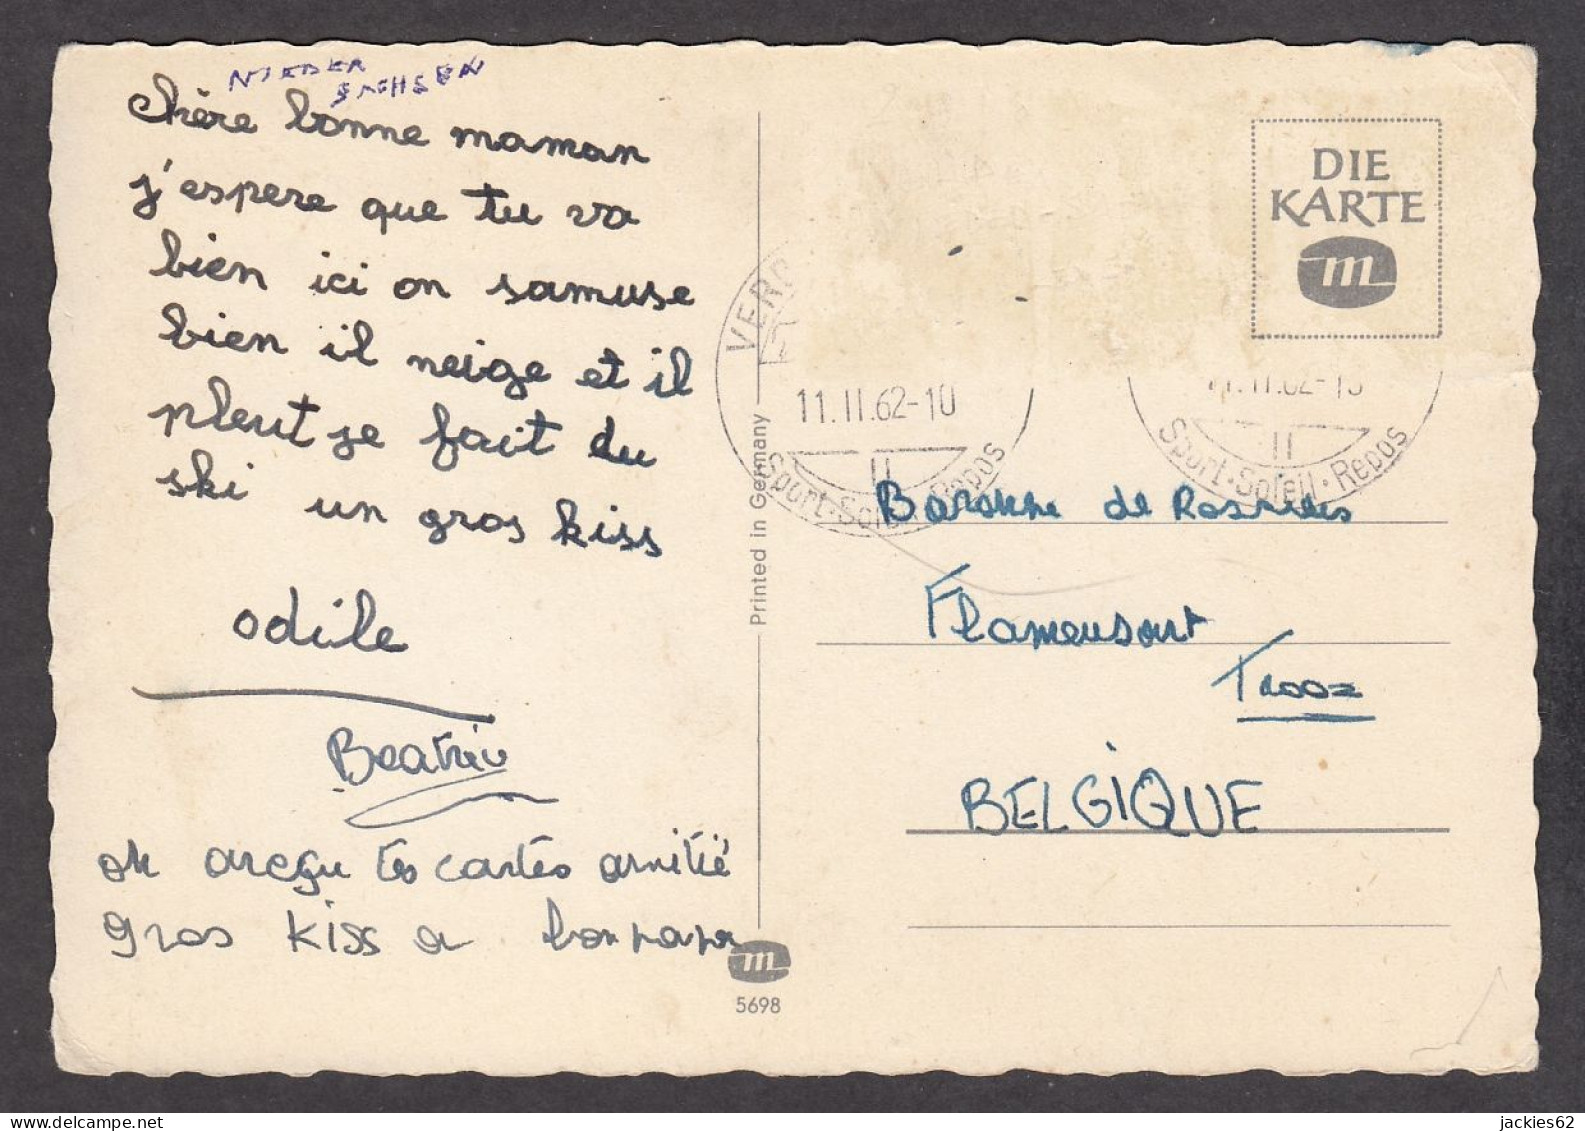 NIEDER
SACHSEN
chère bonne maman
j'espere que tu va
bien ici on samuse
bien il neige et il
pleut je fait du
ski un gros kiss
odile
Beatrix
on areçu tes cartes amitié
gros kiss a bonpapa
Printed in Germany
m
5698
DIE
KARTE
m
VER
11.II.62-10
II
Sport·Soleil·Repos
11.II.62-10
II
Sport·Soleil·Repos
Baronne de
Flamensart
Trooz
BELGIQUE
www.delcampe.net
jackies62